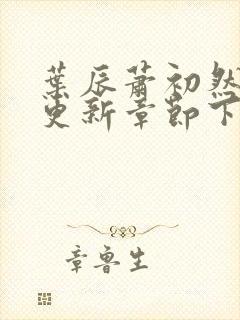 葉辰蕭初然
更新章節下
章魯生